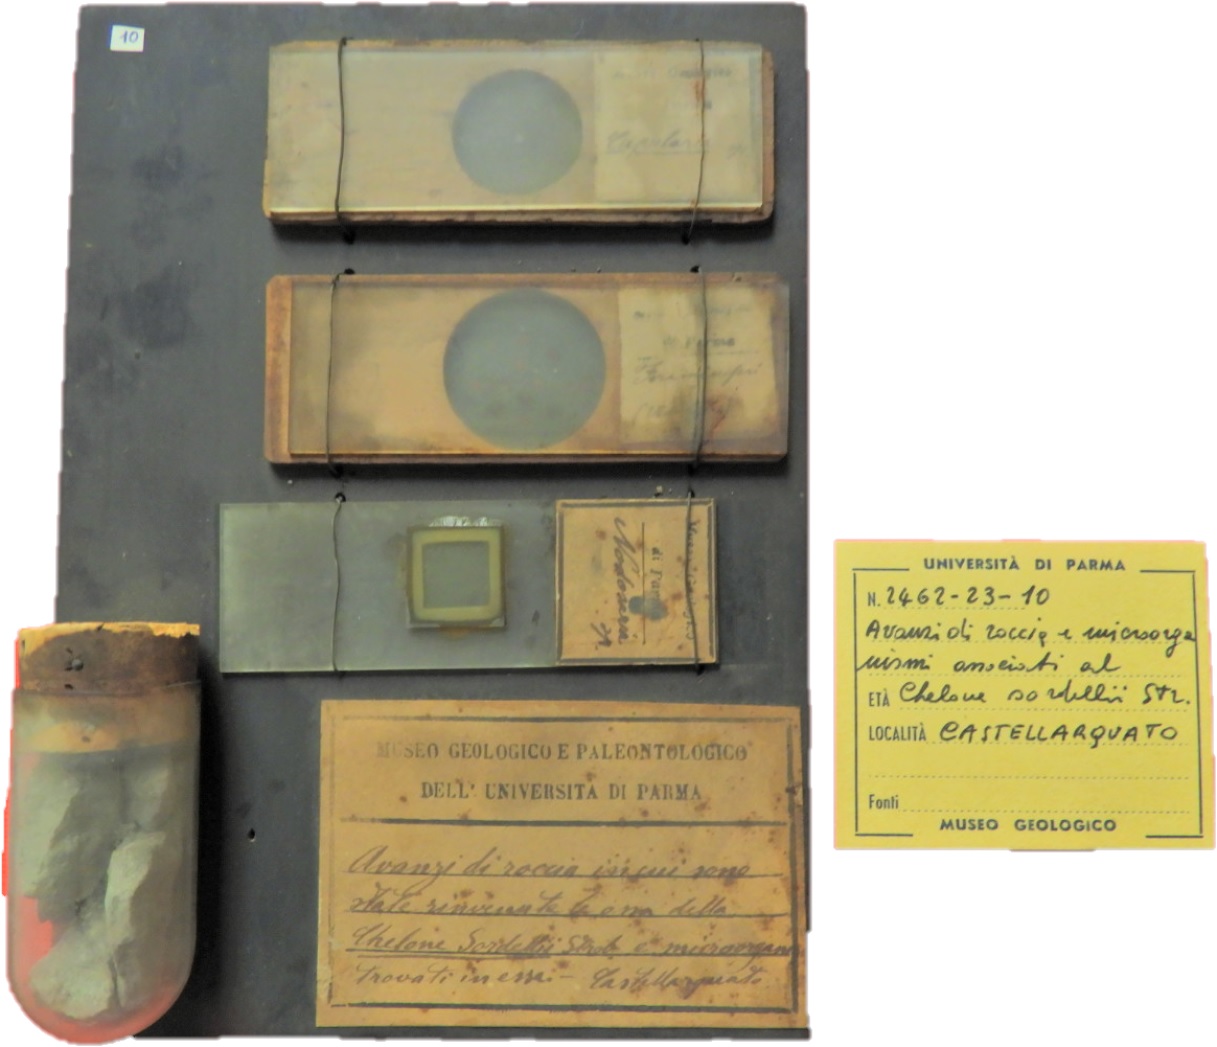 10
Cupularia
di Parma
Museo Geologico
di Parma
Nodosaria
MUSEO GEOLOGICO E PALEONTOLOGICO
DELL' UNIVERSITÀ DI PARMA
Avanzi di roccia in cui sono
state rinvenute le ossa della
Chelone Sordellii Strob e microrgani
trovati in essi - Castellarquato
UNIVERSITÀ DI PARMA
N. 2462-23-10
Avanzi di roccia e microorga
nismi associati al
ETÀ Chelone sordellii Str.
LOCALITÀ CASTELLARQUATO
Fonti
MUSEO GEOLOGICO